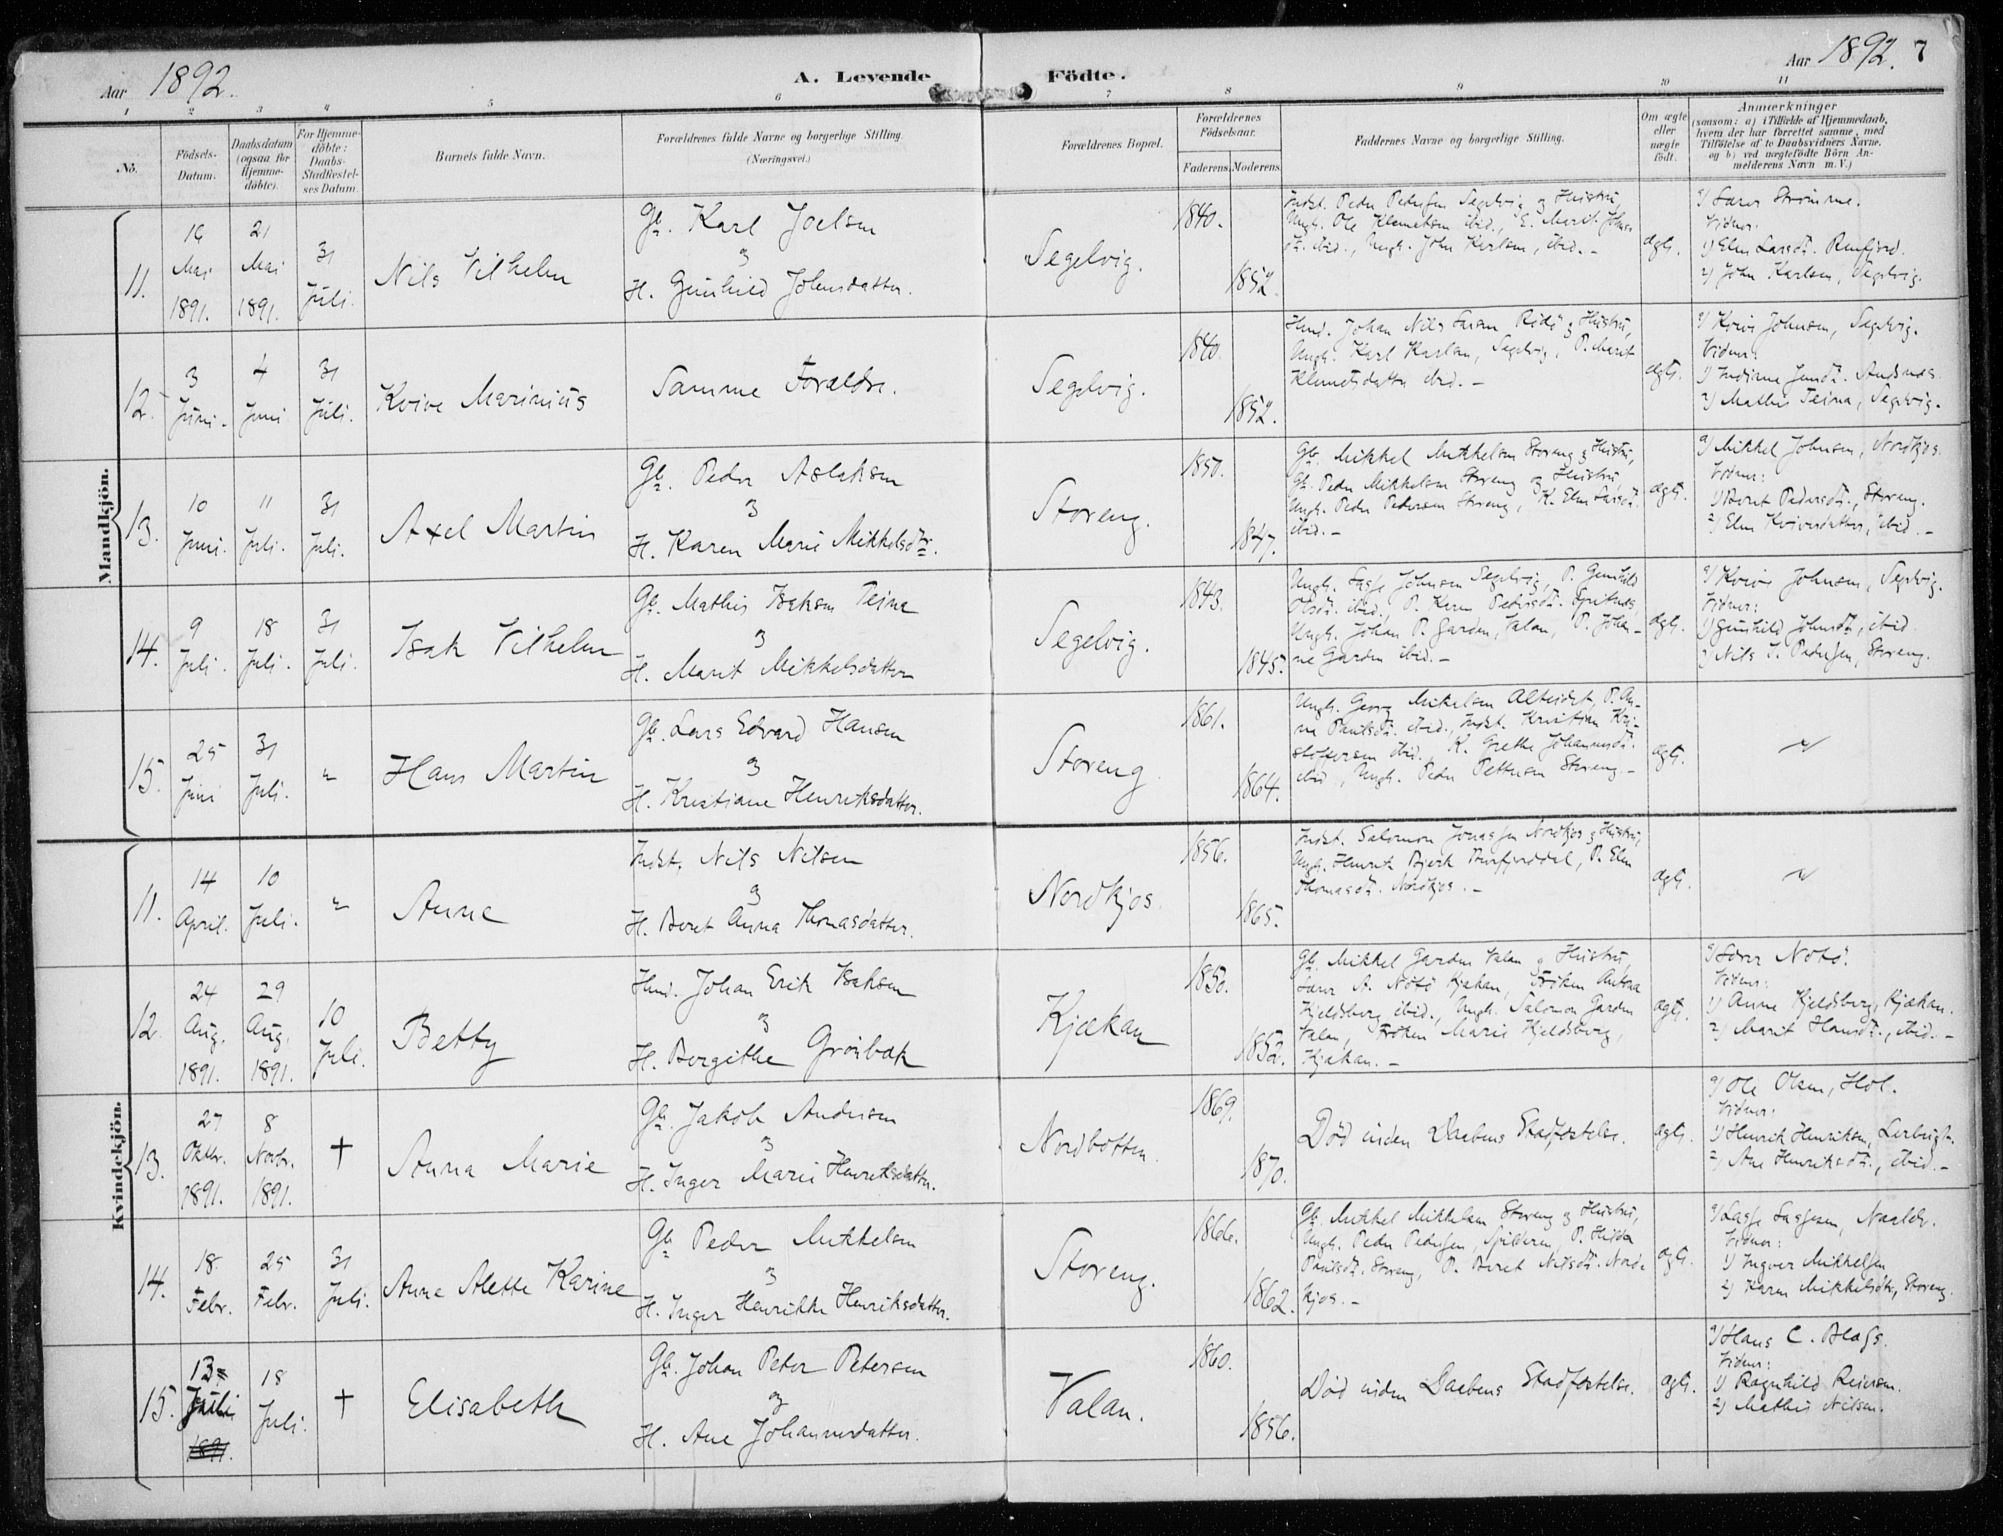 Aar 1892.
A. Levende Födte.
Aar 1892. 7
1 2 3 4 5 6 7 8 9 10 11
No.
Födsels-Datum.
Daabsdatum (ogsaa for Hjemme-döbte).
For Hjemme-döbte: Daabs-Stadfæstel-ses Datum.
Barnets fulde Navn.
Forældrenes fulde Navne og borgerlige Stilling. (Næringsvei.)
Forældrenes Bopæl.
Forældrenes Födselsaar.
Faderens. Moderens.
Faddernes Navne og borgerlige Stilling.
Om ægte eller uægte födt.
Anmærkninger
(saasom: a) i Tilfælde af Hjemmedaab, hvem der har forrettet samme, med Tilföielse af to Daabsvidners Navne, og b) ved uægtefödte Börn Anmelderens Navn m. V.)
Mandkjön.
11.
16 Mai 1891.
21 Mai 1891.
31 Juli.
Nils Vilhelm
Gb. Karl Joelsen
&
H. Gunhild Johnsdatter.
Segelvig.
1840.
1852.
Indst. Peder Pedersen Segelvig og Hustru,
Ungk. Ole Klemetsen ibid., E. Marit Johns-
dt. ibid., Ungk. John Karlsen, ibid. –
ægte.
a) Lærer Strømme.
Vidner:
1) Elen Larsdt. Reinfjord.
2) John Karlsen, Segelvig.
12.
3 Juni.
4 Juni
31 Juli.
Kvive Marinius
Samme Forældre.
Segelvig.
1840.
1852.
Johan Nils Larsen Rödö & Hustru,
Ungk. Karl Karlsen, Segelvig, P. Marit
Klemetsdatter ibid. –
ægte.
a) Kvive Johnsen, Segelvig.
Vidner:
1) Indiane Jensdt. Andsnæs.
2) Mathis Teina, Segelvig.
13.
10 Juni.
11 Juli.
31 Juli.
Axel Martin
Gb. Peder Aslaksen
&
H. Karen Marie Mikkelsdtr.
Storeng.
1850.
1847.
Gb. Mikkel Mikkelsen Storeng & Hustru,
Gb. Peder Mikkelsen Storeng & Hustru
Ungk. Peder Pedersen Storeng, K. Elen Larsdt.
ibid. –
ægte.
a) Mikkel Johnsen, Nordkjos.
Vidner:
1) Beret Pedersdt., Storeng.
2) Elen Kviversdatter, ibid. –
14.
9 Juli.
18 Juli.
31 Juli.
Isak Vilhelm
Gb. Mathis Isaksen Teina
&
H. Marit Mikkelsdatter
Segelvig.
1843.
1845.
Ungk. Lasse Johnsen Segelvig, P. Gunhild
Olsdt. ibid, P. Karen Pedersdt. Spitnæs,
Ungk. Johan P. Garden, Valan, P. Johan-
ne Garden ibid. –
ægte.
a) Kvive Johnsen, Segelvig.
Vidner:
1) Gunhild Johnsdt., ibid.
2) Nils L. Pedersen, Storeng.
15.
25 Juni
31 Juli.
"
Hans Martin
Gb. Lars Edvard Hansen
&
H. Kristiane Henriksdatter.
Storeng
1861.
1864.
Ungk. Georg Mikkelsen Alteidet, P. An-
na Paulsdt. ibid., Indst. Kristian Kri-
stofersen ibid., K. Grethe Johannesdt.
ibid., Ungk. Peder Pettersen Storeng. –
ægte.
"
Kvindekjön.
11.
14 April.
10 Juli.
"
Anne
Indst. Nils Nilsen
&
H. Beret Anna Thomasdatter.
Nordkjos
1856.
1865.
Indst. Salomon Jonassen Nordkjos & Hustru,
Ungk. Henrik Burfjorddal, P. Elen
Thomasdt. Nordkjos. –
ægte.
"
12.
24 Aug. 1891.
29 Aug. 1891.
10 Juli.
Betty
Johan Erik Isaksen
&
H. Bergithe Grönbak
Kjækan
1850.
1852.
Gb. Mikkel Garden Valan & Hustru,
Lærer A. Notö Kjækan, Fröken Antona
Kjeldsberg ibid., Ungk. Salomon Garden
Valan, Fröken Marie Kjeldsberg,
Kjækan. –
ægte.
a) Lærer Notö.
Vidner:
1) Anne Kjeldsberg, Kjækan.
2) Marit Hansdt., ibid. –
13.
27 Oktbr. 1891.
8 Novbr. 1891.
†
Anna Marie
Gb. Jakob Andersen
&
H. Inger Marie Henriksdatter.
Nordbotten.
1869.
1870.
Död inden Daabens Stadfæstelse.
ægte.
a) Ole Olsen, Hol.
Vidner:
1) Henrik Henriksen,
2) Ane Henriksdt., ibid. –
14.
18 Febr.
25 Febr.
31 Juli.
Anne Alette Karine
Gb. Peder Mikkelsen
&
H. Inger Henrikke Henriksdatter.
Storeng.
1866.
1862.
Gb. Mikkel Mikkelsen Storeng & Hustru,
Ungk. Peder Pedersen, Spilderen, P. Hilda
Paulsdt. Storeng, P. Beret Nilsdt. Nord-
kjos. –
ægte.
a) Lasse Lassesen,
Vidner:
1) Ingver Mikkelsen
2) Karen Mikkelsdtr, Storeng.
15.
13 Juli 1891.
18 Juli.
†
Elisabeth
Gb. Johan Peter Petersen
&
H. Ane Johannesdatter.
Valan.
1860.
1856.
Död inden Daabens Stadfæstelse.
ægte.
a) Hans C.
Vidner:
1) Ragnhild Reiersen.
2) Mathis Nilsen.